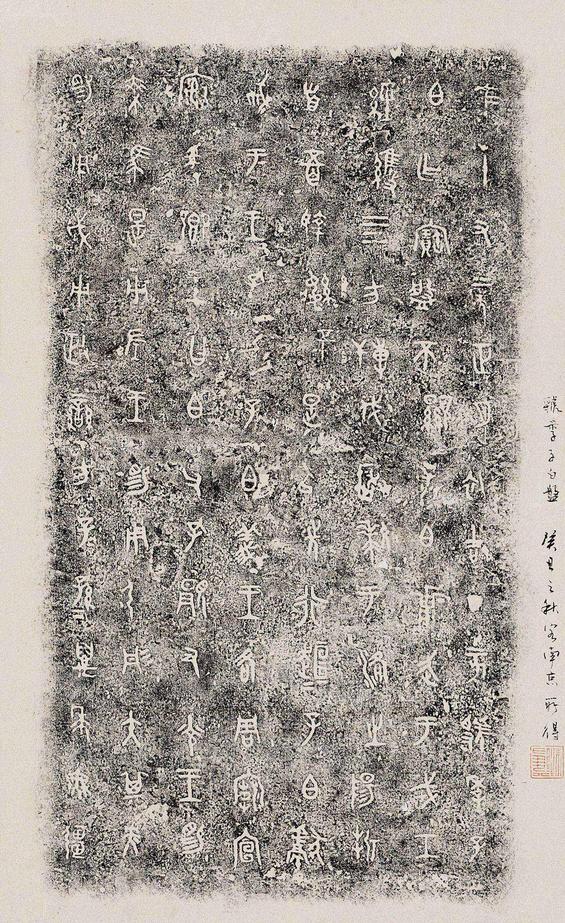 隹十又二年正月初吉丁亥虢季子
白乍寶盤不顯子白壯武于戎工
經維四方搏伐玁狁于洛之陽折
首五百執訊五十是以先行趄趄子白獻
馘于王王孔加子白義王各周廟宣
榭爰鄉王曰白父孔顯又光王賜
乘馬是用左王賜用弓彤矢其央
賜用戉用政蠻方子子孫孫萬年無疆
虢季子白盤 癸丑之秋客南京所得